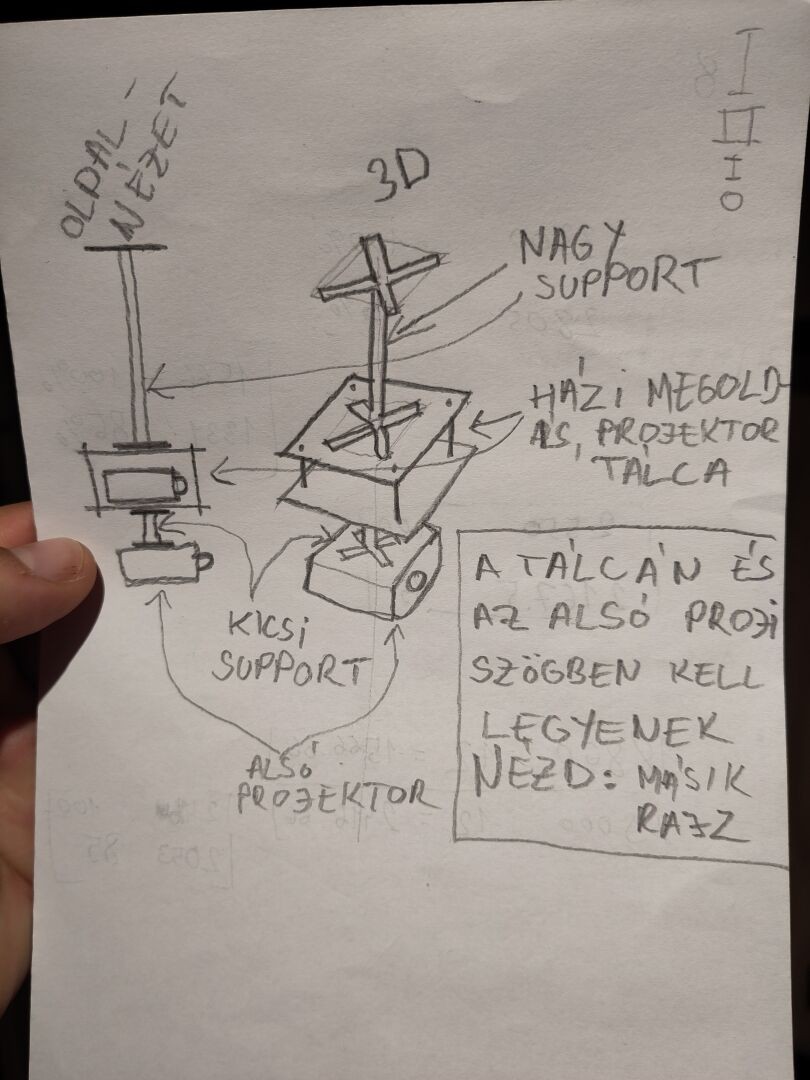 OLDAL-
NÉZET
3D
NAGY
SUPPORT
HÁZI MEGOLD-
ÁS, PROJEKTOR
TÁLCA
KICSI
SUPPORT
ALSÓ
PROJEKTOR
A TÁLCÁN ÉS
AZ ALSÓ PROJI
SZÖGBEN KELL
LEGYENEK
NÉZD: MÁSIK
RAJZ